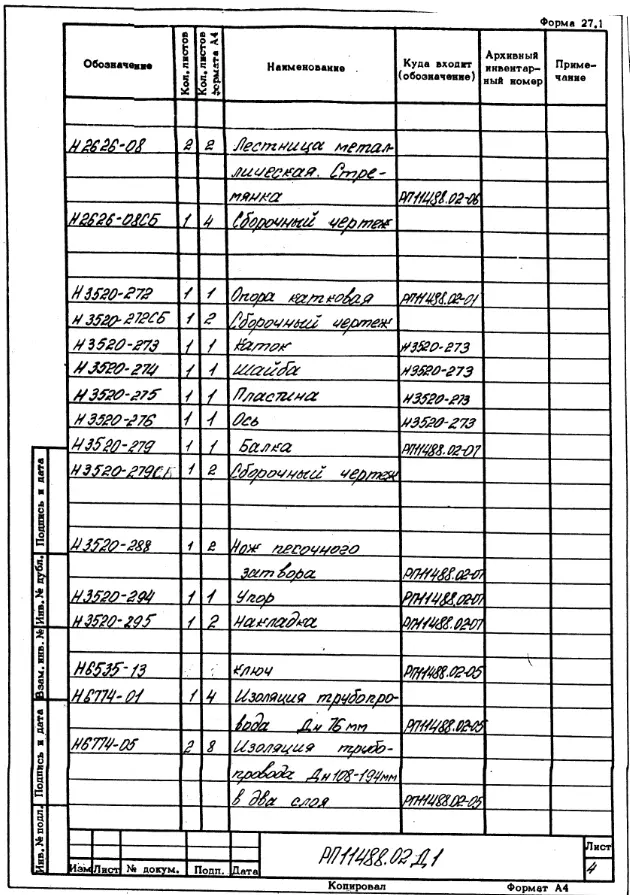 Форма 27.1
Обозначение Кол. листов Кол. листов формата А4 Наименование Куда входит (обозначение) Архивный инвентарный номер Примечание
Н2626-08 2 2 Лестница метал-
лическая. Стре-
мянка РП11488.02-06
Н2626-08СБ 1 4 Сборочный чертеж
Н3520-272 1 1 Опора катковая РП11488.02-01
Н3520-272СБ 1 2 Сборочный чертеж
Н3520-273 1 1 Каток Н3520-273
Н3520-274 1 1 Шайба Н3520-273
Н3520-275 1 1 Пластина Н3520-273
Н3520-276 1 1 Ось Н3520-273
Н3520-279 1 1 Балка РП11488.02-07
Н3520-279СБ 1 2 Сборочный чертеж
Н3520-288 1 2 Нож песочного
затвора РП11488.02-07
Н3520-294 1 1 Упор РП11488.02-07
Н3520-295 1 2 Накладка РП11488.02-07
Н6535-13 Ключ РП11488.02-05
Н6774-01 1 4 Изоляция трубопро-
вода Дн 76 мм РП11488.02-05
Н6774-05 2 8 Изоляция трубо-
провода Дн 108-194мм
в два слоя РП11488.02-05
Инв. № подл. Подпись и дата Взам. инв. № Инв. № дубл. Подпись и дата
Изм Лист № докум. Подп. Дата
РП11488.02 Д1
Лист
4
Копировал Формат А4